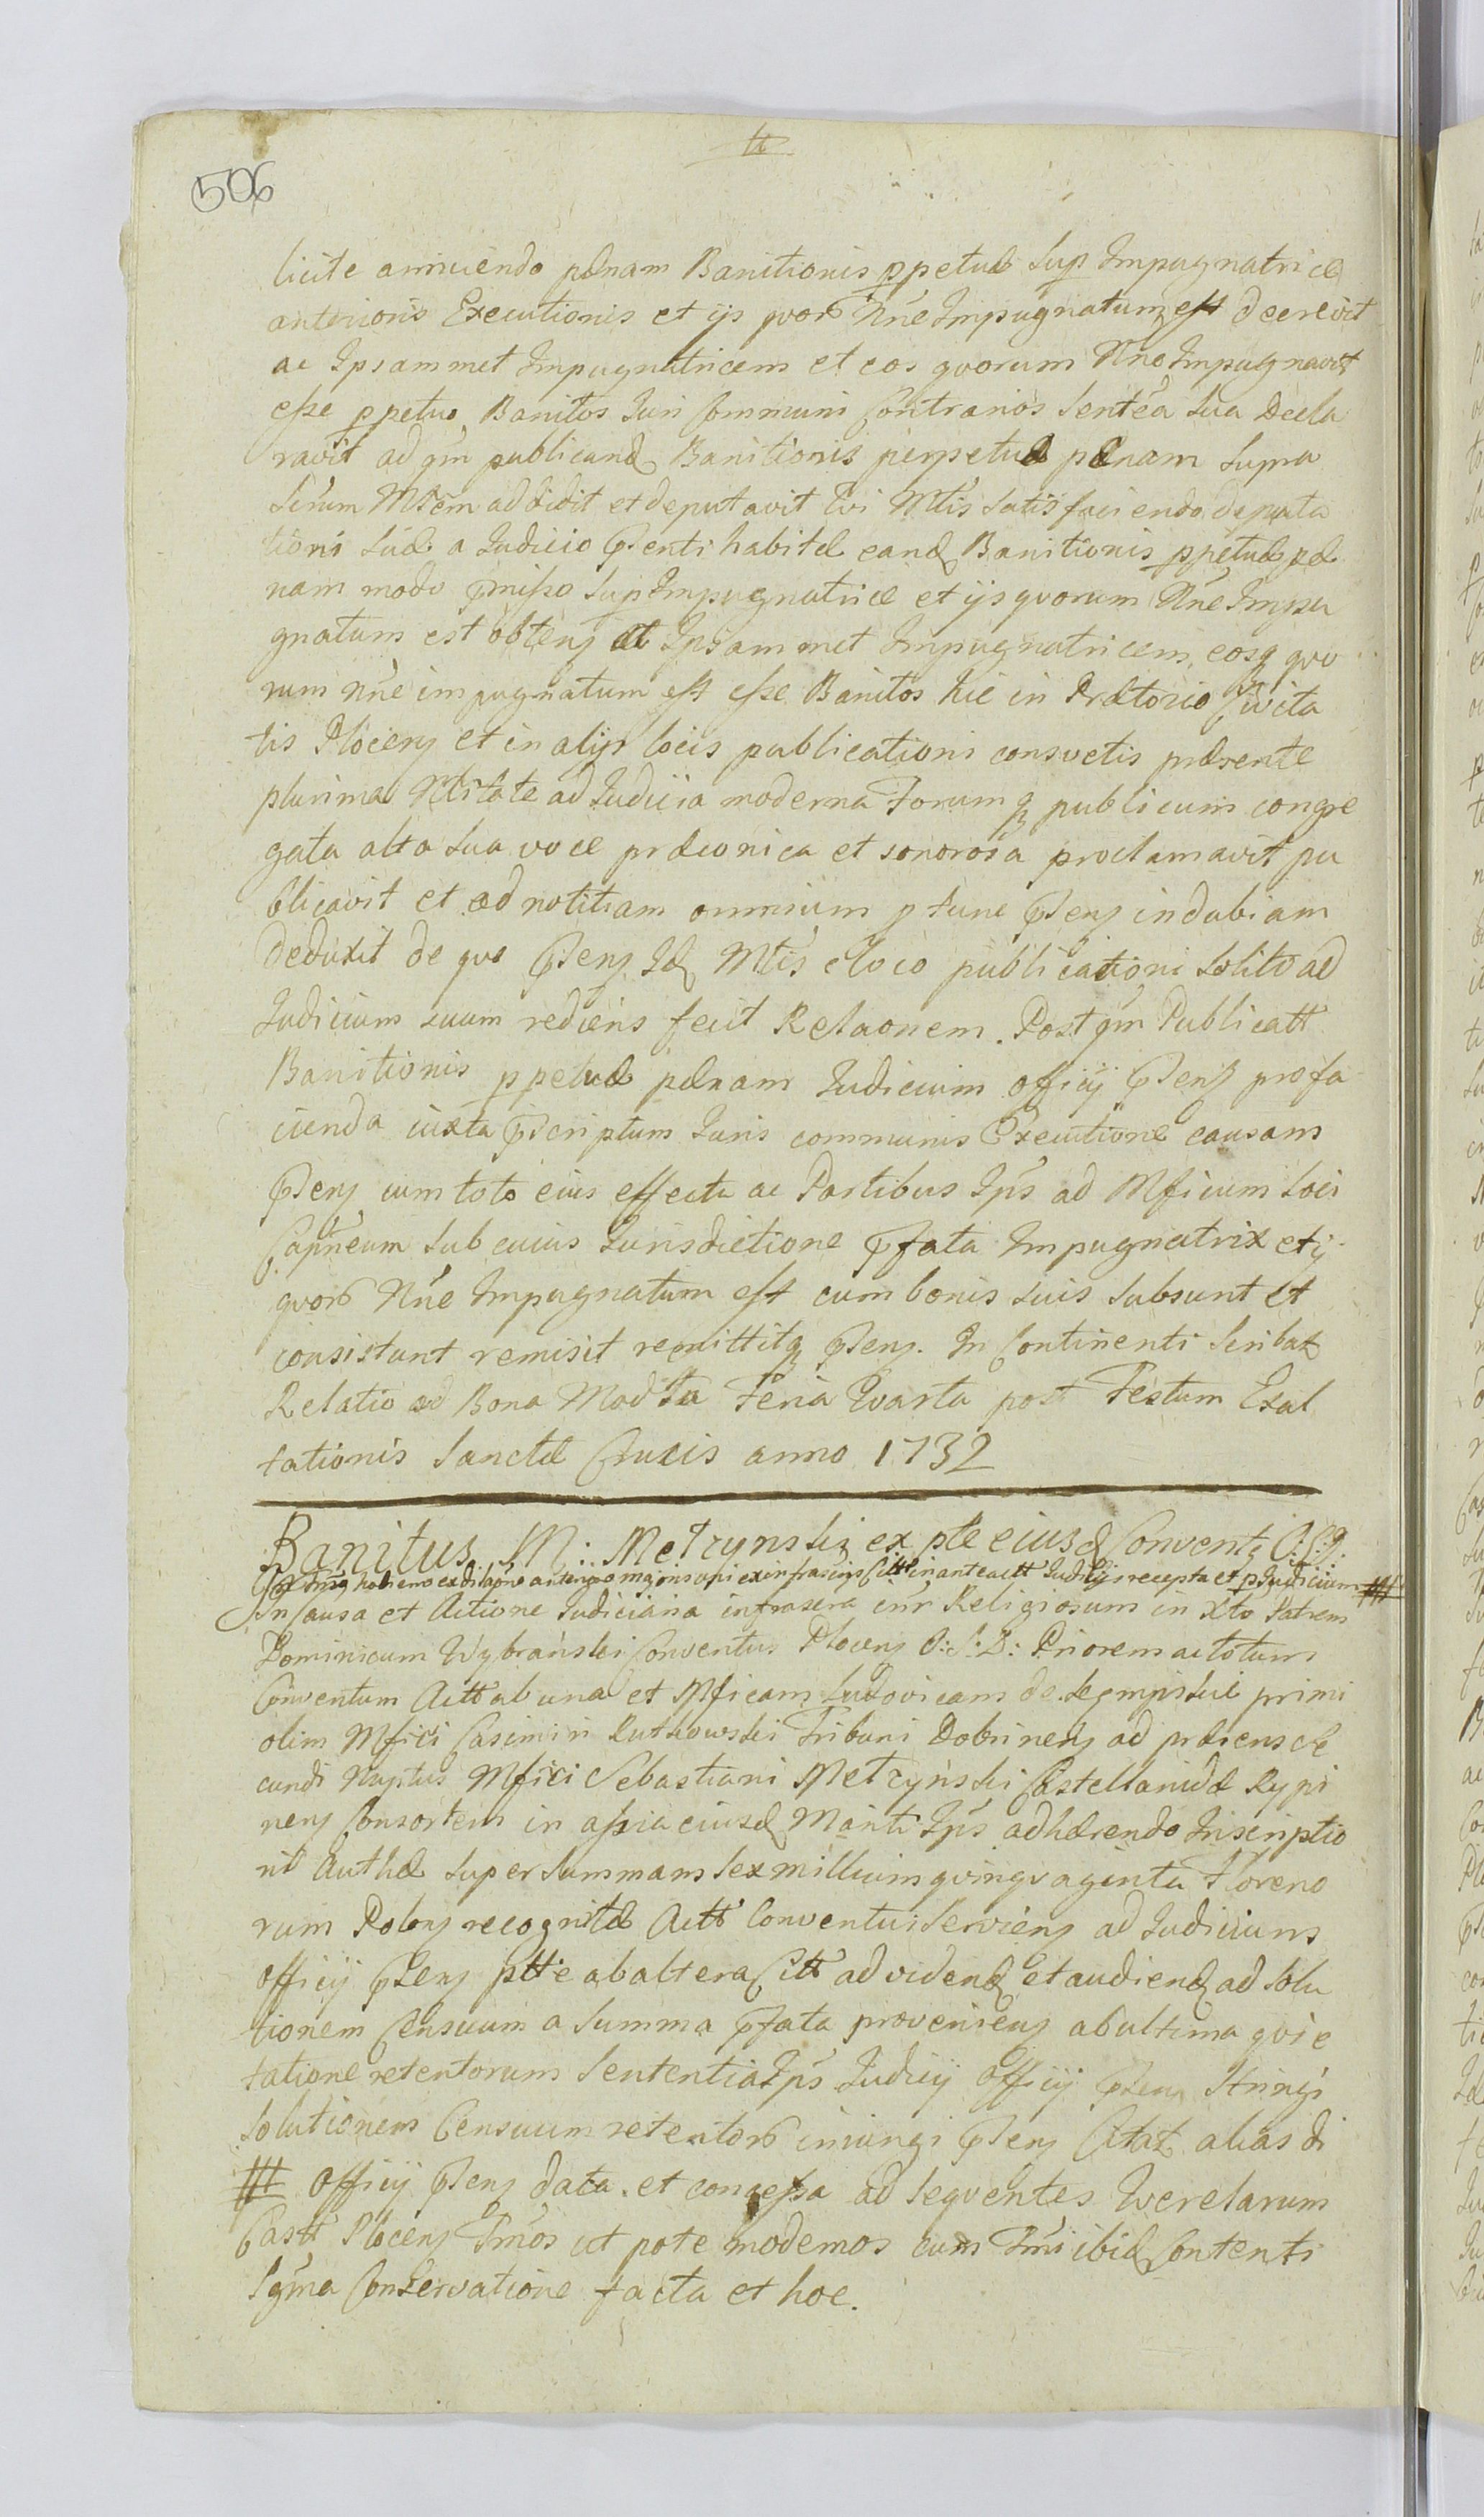 506
licite amiciendo pænam Banitionis ppetuæ sup Impugnatrice
anterioris Executionis et ijs quor Nne Impugnatum est decrevit
ac Ipsammet Impugnatricem et eos quorum Nne Impugnavit
esse ppetuo Banitos Iuri Communi Contrarios Sentea sua Decla
ravit ad qm publicand Banitionis perpetuæ pænam supra
Strum Mrem addidit et deputavit Qui Mtis satisfaciendo deputa
tioni suæ a Iudicio Pnti habitæ eand Banitionis ppetuæ pæ
nam modo pmisso sup Impugnatrice et ijs quorum Nne Impu
gnatum est obtens et Ipsammet Impugnatricem eosq quo
rum nne impugnatum est esse Banitos hic in Prætorio Civita
tis Plocens et in alijs locis publicationi consvetis præsente
plurima Nblitate ad Iudicia moderna Forumq publicum congre
gata alta sua voce præconica et sonorosa proclamavit pu
blicavit et ad notitiam omnium p tunc Psens indubiam
deduxit de quo Psens Id Mtis e loco publicationi solito ad
Iudicium suum rediens fecit Relaonem. Post qm Publicatt
Banitionis ppetuæ pænam Iudicium officij Psens pro fa
cienda iuxta pscriptum Iuris communis Executione causam
Psens cum toto eius effectu ac Partibus Ips ad Mficum Loci
Capneum sub cuius Iurisdictione pfata Impugnatrix et ij
quor Nne Impugnatum est cum bonis suis subsunt et
consistunt remisit remittitq Psens. In Continenti Scribat
Relatio ad Bona Mod Sta Feria Quarta post Festum Exal
tationis Sanctæ Crucis anno 1732
Banitus M: Metzynski ex pte eiusd Convent O:S:D:
In Causa et Actione Iudiciaria infrascra inr Religiosum in Xto Patrem
Dominicum Wybranski Conventus Plocens O:S:D: Priorem ac totum
Conventum Actt ab una et Mficam Ludovicam de primi
olim Mfici Casimiri Rutkowski Tribuni Dobrinens ad præsens se
cundi Nuptus Mfici Sebastiani Metzynski Castellanidæ Rypi
nens Consortem in assia eiusd Mariti Ips adhærendo Inscriptio
ni Authæ super summam sex millium quinquaginta Floreno
rum Polons recognitæ Actt Conventui serviens ad Iudicium
officij Psens ptte ab altera Citt ad videnđ et audiend ad solu
tionem Censuum a summa pfata proveniens ab ultima quie
tatione retentorum sententia Ips Iudicij officij Psens stringi
solutionem Censuum retentor iniungi Psens Citat alias di
# officij Psens data et concessa ad sequentes Querelarum
Castr Plocens Tmos ut pote modernos cum Tmi ibid Contenti
Conservatione facta et hoc.